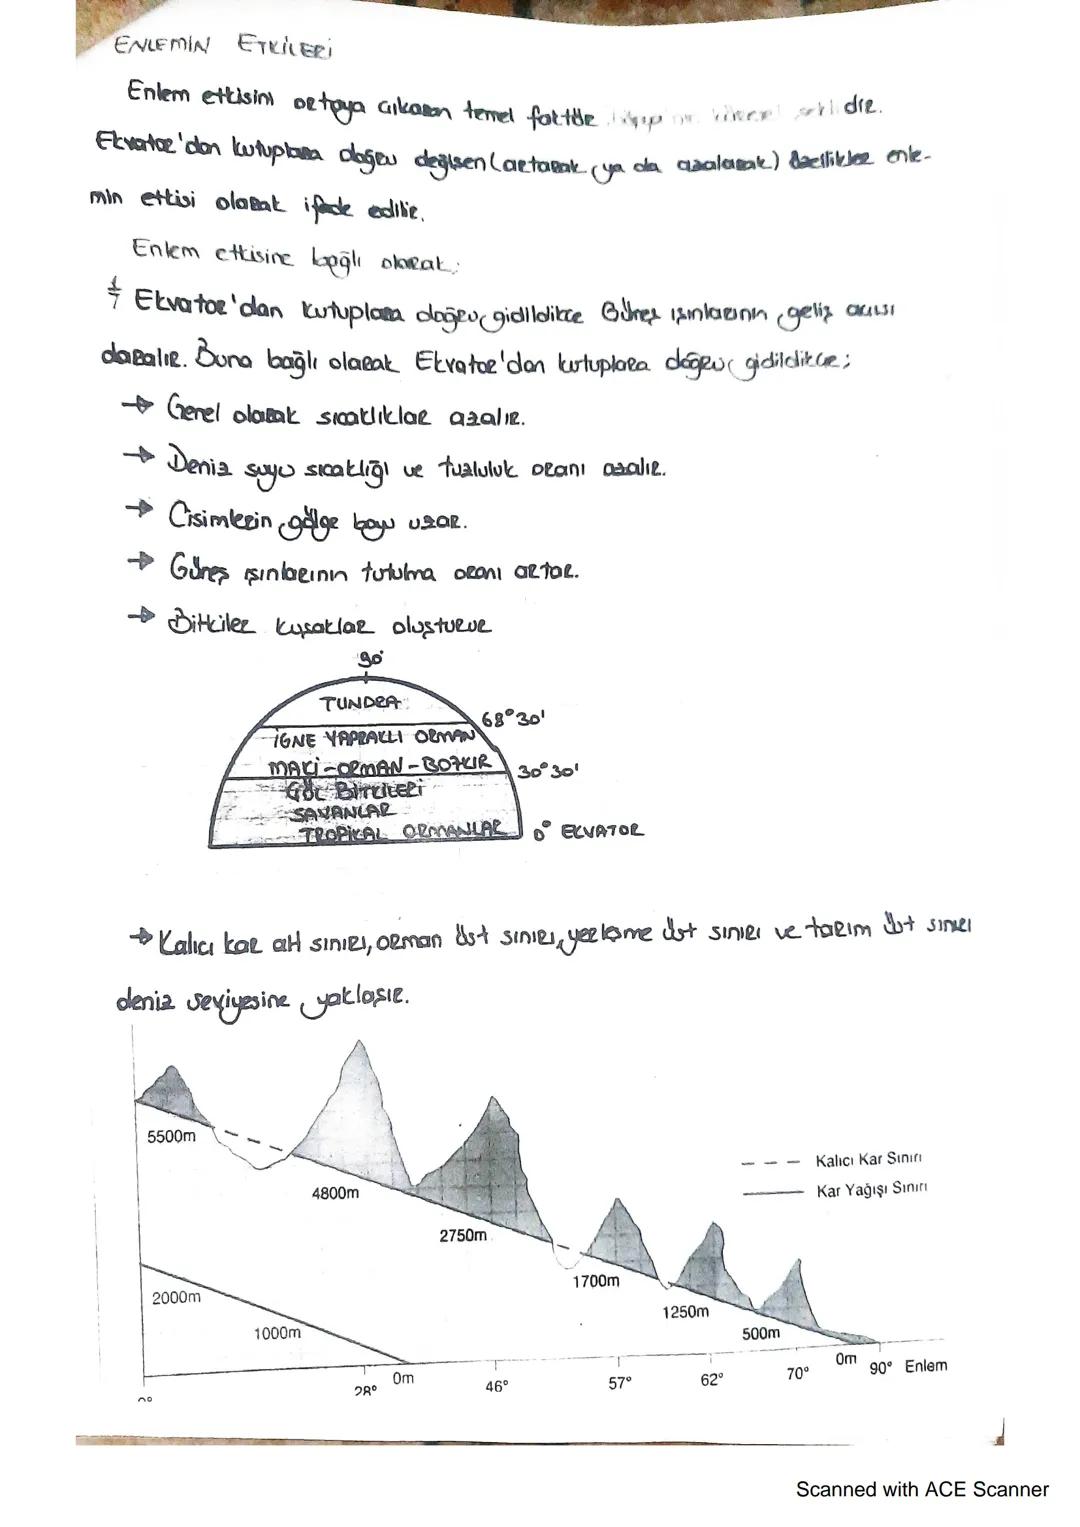 ENLEMİN ETKİLERİ
Enlem etkisini ortaya çıkaran temel faktör dir.
Ekvator'dan kutuplara doğru değişen (artarak ya da azalarak) özellikler enle-
min etkisi olarak ifade edilir.
Enlem etkisine bağlı olarak;
Ekvator'dan kutuplara doğru gidildikçe Güneş ışınlarının geliş açısı
daralır. Buna bağlı olarak Ekvator'dan kutuplara doğru gidildikçe;
→ Genel olarak sıcaklıklar azalır.
→ Deniz suyu sıcaklığı ve tuzluluk oranı azalır.
→ Cisimlerin gölge boyu uzar.
→ Güneş ışınlarının tutulma oranı artar.
→ Bitkiler kuşaklar oluşturur
90°
TUNDRA
68°30'
İĞNE YAPRAKLI ORMAN
MAKİ-ORMAN-BOZKIR
30°30'
ÇÖL BİTKİLERİ
SAVANLAR
TROPİKAL ORMANLAR
0° EKVATOR
→ Kalıcı kar alt sınırı, orman üst sınırı, yerleşme üst sınırı ve tarım üst sınırı
deniz seviyesine yaklaşır.
5500m
4800m
2750m
1700m
1250m
500m
0m
Kalıcı Kar Sınırı
Kar Yağışı Sınırı
2000m
1000m
0m
28°
46°
57°
62°
70°
90° Enlem
Scanned with ACE Scanner